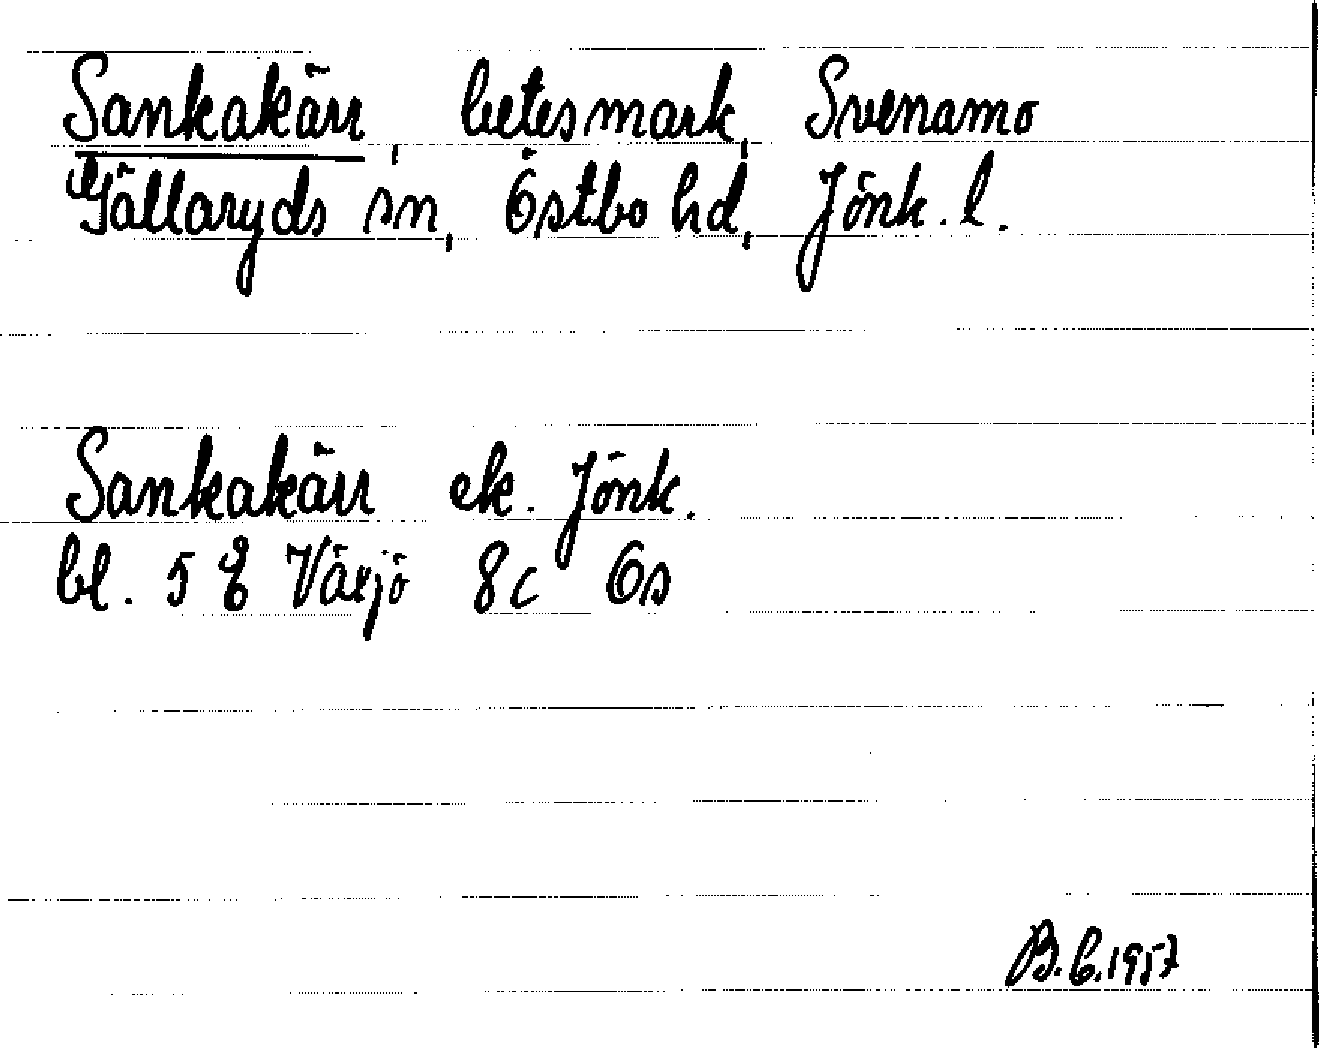 Sankakärr, betesmark, Svenamo
Gällaryds sn, Östbo hd, Jönk. l.
Sankakärr ek. Jönk.
bl. 5 E Växjö 8c Ös
B.E. 1957